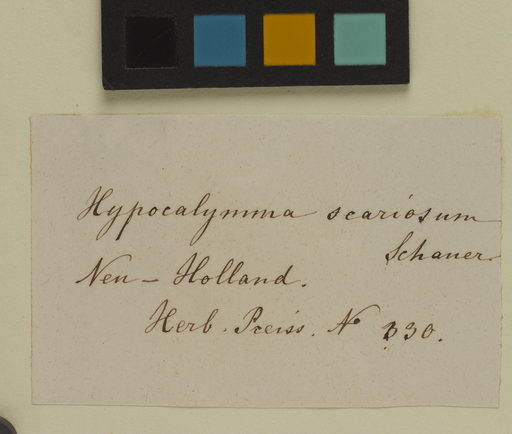 Hypocalymma scariosum
Schauer
Neu - Holland.
Herb. Preiss. No 330.